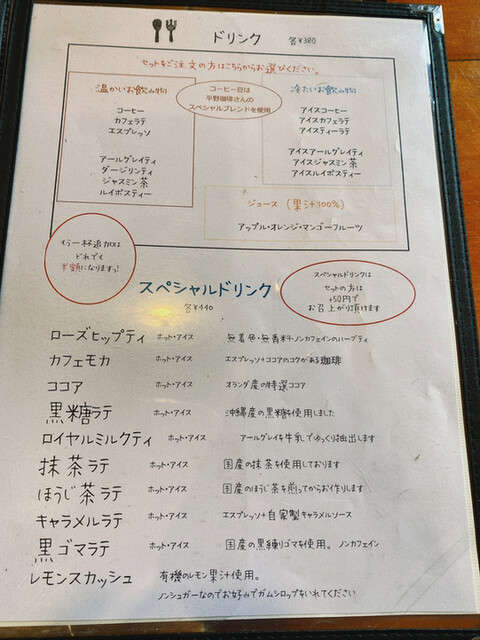 ドリンク 各¥380
セットをご注文の方はこちらからお選びください。
温かいお飲み物
コーヒー
カフェラテ
エスプレッソ
アールグレイティ
ダージリンティ
ジャスミン茶
ルイボスティー
コーヒー豆は
平野珈琲さんの
スペシャルブレンドを使用
冷たいお飲み物
アイスコーヒー
アイスカフェラテ
アイスティーラテ
アイスアールグレイティ
アイスジャスミン茶
アイスルイボスティー
ジュース (果汁100%)
アップル・オレンジ・マンゴーフルーツ
もう一杯追加は
どれでも
半額になりますっ!
スペシャルドリンク
各¥440
スペシャルドリンクは
セットの方は
+50円で
お召上がり頂けます
ローズヒップティ ホット・アイス 無着色・無香料・ノンカフェインのハーブティ
カフェモカ ホット・アイス エスプレッソ+ココアのコクがある珈琲
ココア ホット・アイス オランダ産の特選ココア
黒糖ラテ ホット・アイス 沖縄産の黒糖を使用しました
ロイヤルミルクティ ホット・アイス アールグレイを牛乳でゆっくり抽出します
抹茶ラテ ホット・アイス 国産の抹茶を使用しております
ほうじ茶ラテ ホット・アイス 国産のほうじ茶を煎ってからお作りします
キャラメルラテ ホット・アイス エスプレッソ+自家製キャラメルソース
黒ゴマラテ ホット・アイス 国産の黒練りゴマを使用。ノンカフェイン
レモンスカッシュ 有機のレモン果汁使用。
ノンシュガーなのでお好みでガムシロップをいれてください